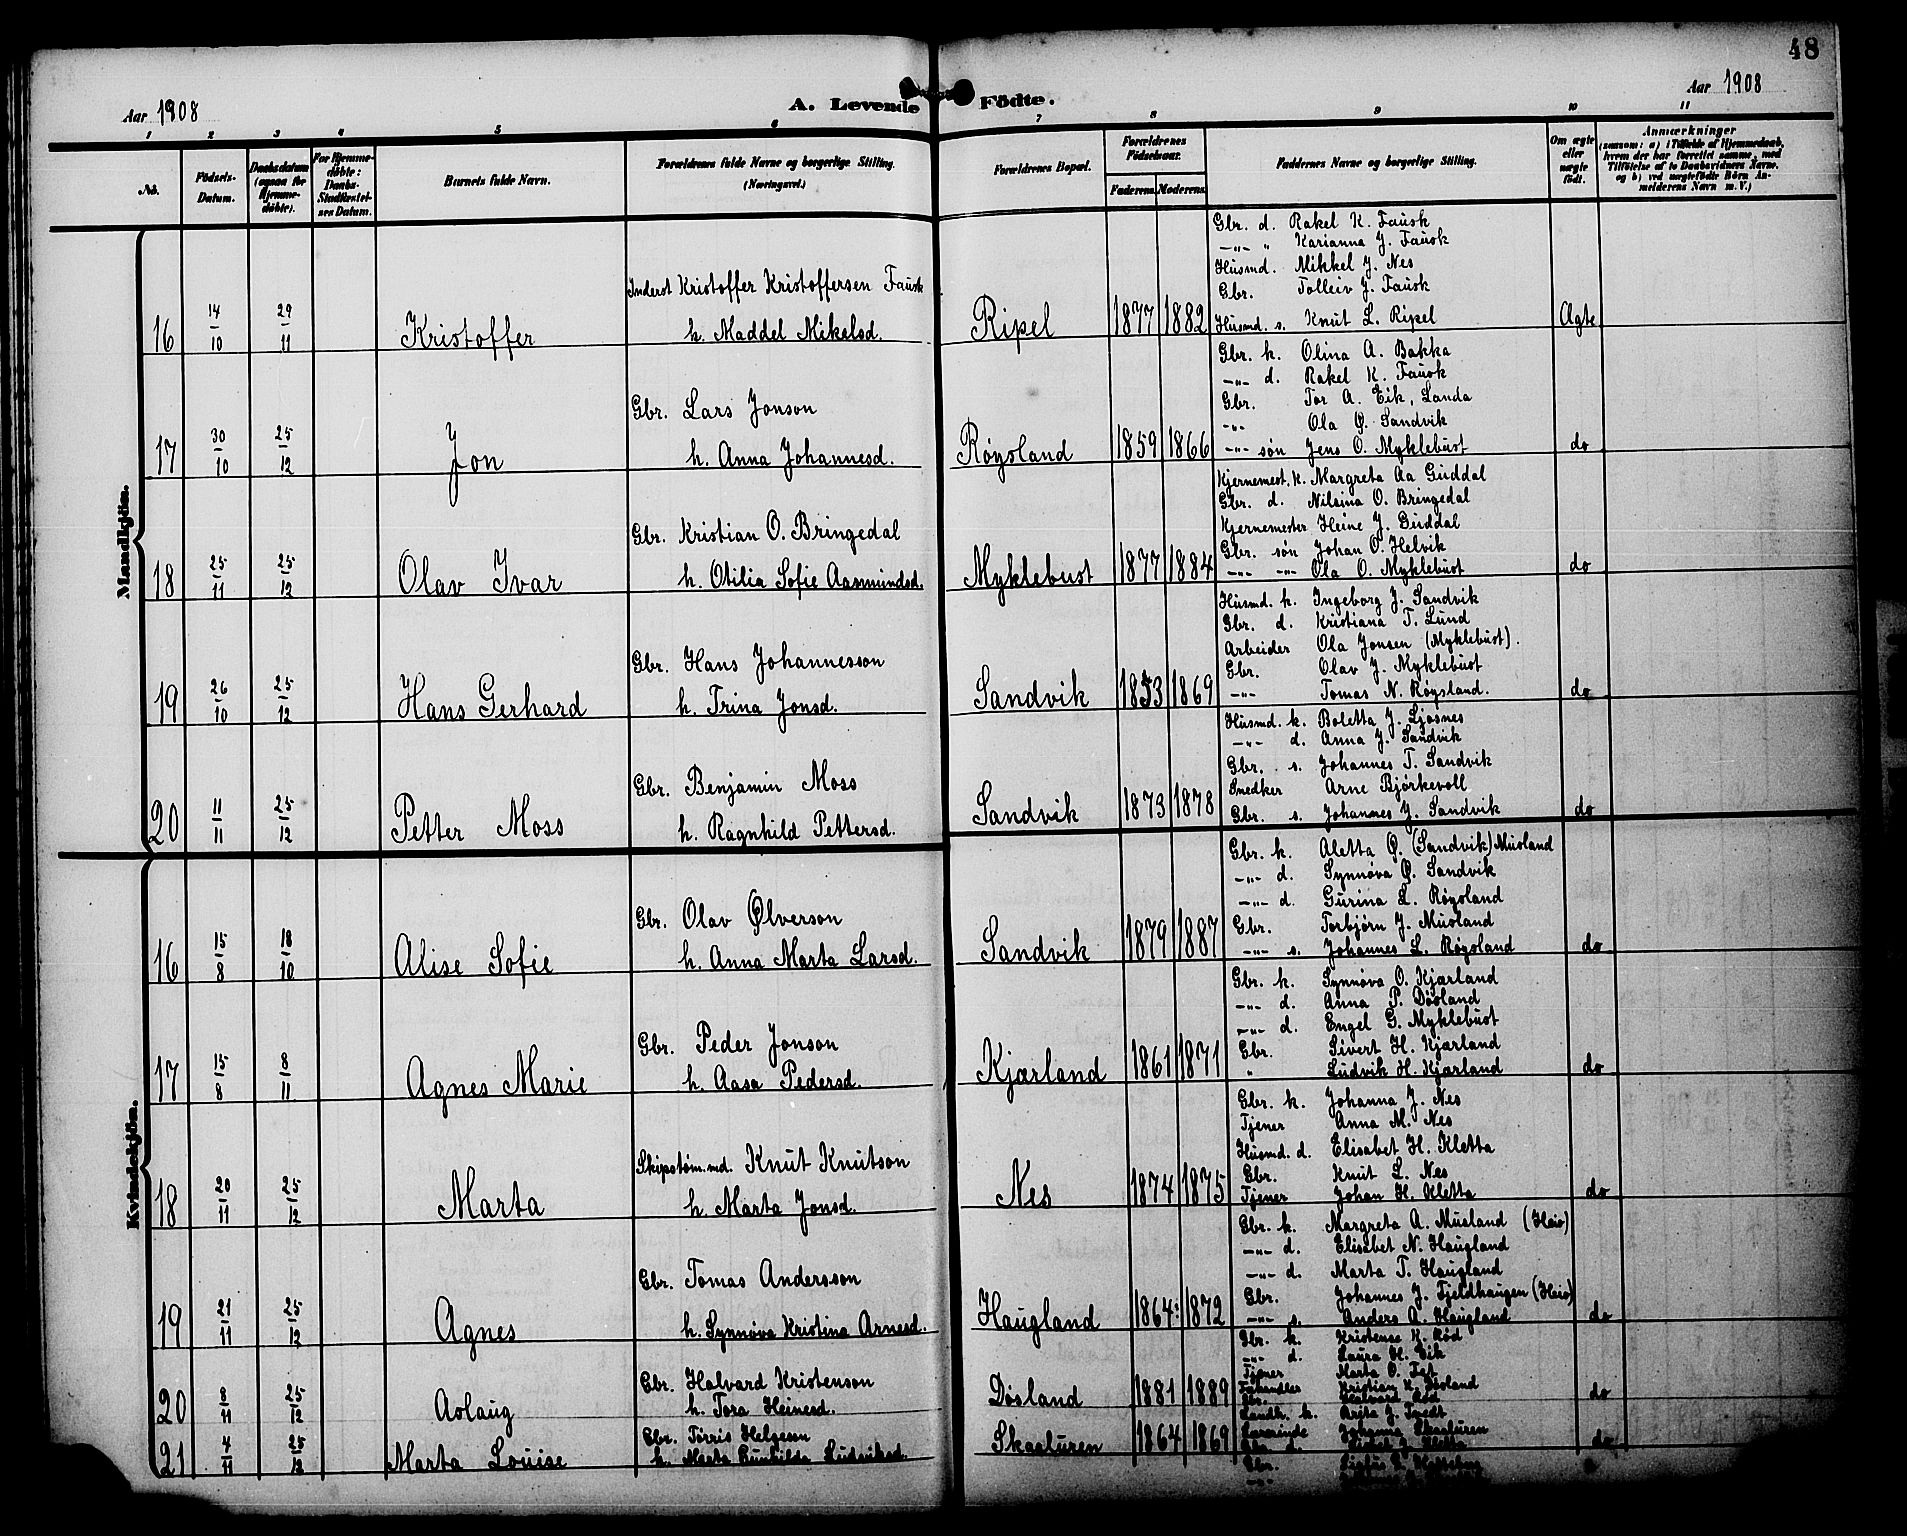 48
Aar 1908
A. Levende Födte.
Aar 1908
1 2 3 4 5 6 7 8 9 10 11
No.
Födsels-Datum.
Daabsdatum (ogsaa for Hjemme-döbte).
For Hjemme-döbte: Daabs-Stadfæstel-ses Datum.
Barnets fulde Navn.
Forældrenes fulde Navne og borgerlige Stilling. (Næringsvei.)
Forældrenes Bopæl.
Forældrenes Födselsaar.
Faderens. Moderens.
Faddernes Navne og borgerlige Stilling.
Om ægte eller uægte födt.
Anmærkninger
(saasom: a) i Tilfælde af Hjemmedaab, hvem der har forrettet samme, med Tilföielse af to Daabsvidners Navne, og b) ved uægtefödte Börn An-melderens Navn m. V.)
Mandkjön.
16 14/10 29/11 Kristoffer
Inderst Kristoffer Kristoffersen Fausk
h. Maddel Mikelsd.
Ripel 1877 1882
Gbr. d. Rakel K. Fausk
-"- " Karianna J. Fausk
Husmd. Mikkel J. Nes
Gbr. Tolleiv J. Fausk
Husmd. s. Knut L. Ripel
Ægte
17 30/10 25/12 Jon
Gbr. Lars Jonson
h. Anna Johannesd.
Røysland 1859 1866
Gbr. k. Olina A. Bakka
-"- d. Rakel K. Fausk
Gbr. Tor A. Eik, Landa
-"- Ola Ø. Sandvik
-"- søn Jens O. Myklebust
do
18 25/11 25/12 Olav Ivar
Gbr. Kristian O. Bringedal
h. Otilia Sofie Aasmundsd.
Myklebust 1877 1884
Kjernemest. k. Margreta Aa Guddal
Gbr. d. Nilsina O. Bringedal
Kjernemester Heine J. Guddal
Gbr. søn Johan O. Helvik
-"- -"- Ola O. Myklebust
do
19 26/10 25/12 Hans Gerhard
Gbr. Hans Johannesson
h. Trina Jonsd.
Sandvik 1853 1869
Husmd. k. Ingeborg J. Sandvik
Gbr. d. Kristiana T. Lund
Arbeider Ola Jonsen (Myklebust).
Gbr. Olav J. Myklebust
-"- Tomas N. Røysland.
do
20 11/11 25/12 Petter Moss
Gbr. Benjamin Moss
h. Ragnhild Pettersd.
Sandvik 1873 1878
Husmd. k. Boletta J. Ljosnes
-"- d. Anna J. Sandvik
Gbr. s. Johannes T. Sandvik
Snedker Arne Bjørkevoll
Gbr. s. Johannes J. Sandvik
do
Kvindekjön.
16 15/8 18/10 Alise Sofie
Gbr. Olav Ølverson
h. Anna Marta Larsd.
Sandvik 1879 1887
Gbr. k. Aletta Ø. (Sandvik) Musland
-"- d. Synnøva Ø. Sandvik
-"- d. Gurina L. Røysland
Gbr. Torbjørn J. Musland
-"- s. Johannes L. Røysland
do
17 15/8 8/11 Agnes Marie
Gbr. Peder Jonson
h. Aasa Pedersd.
Kjærland 1861 1871
Gbr. k. Synnøva O. Kjærland
-"- d. Anna P. Døsland
-"- d. Engel G. Myklebust
Gbr. Sivert H. Kjærland
" Ludvik H. Kjærland
do
18 20/11 25/12 Marta
Skipstøm.md. Knut Knutson
h. Marta Jonsd.
Nes 1874 1875
Gbr. k. Johanna J. Nes
Tjener Anna M. Nes
Husmd. d. Elisabet H. Kletta
Gbr. Knut L. Nes
Tjener Johan H. Kletta
do
19 21/11 25/12 Agnes
Gbr. Tomas Andersson
h. Synnøva Kristina Arnesd.
Haugland 1864 1872
Gbr. k. Margreta A. Musland (Haio)
-"- d. Elisabet N. Haugland
-"- d. Marta T. Haugland
Gbr. Johannes J. Fjeldhaugen (Haio)
-"- s. Anders A. Haugland
do
20 8/11 25/12 Aslaug
Gbr. Halvard Kristenson
h. Tora Heinesd.
Døsland 1881 1889
Gbr. k. Kristense K. Rød
-"- d. Laura H. Eik
Tjener Marta O. Fet
Kristian K. Døsland
Gbr. Halvard Rød
do
21 4/11 25/12 Marta Louise
Gbr. Tørris Helgeson
h. Marta Gunhilda Ludviksd.
Skaaluren 1864 1869
Landh. k. Brita J. Tvedt
Lærerinde Johanna Skaaluren
Gbr. d.
Gbr.
-"-
do